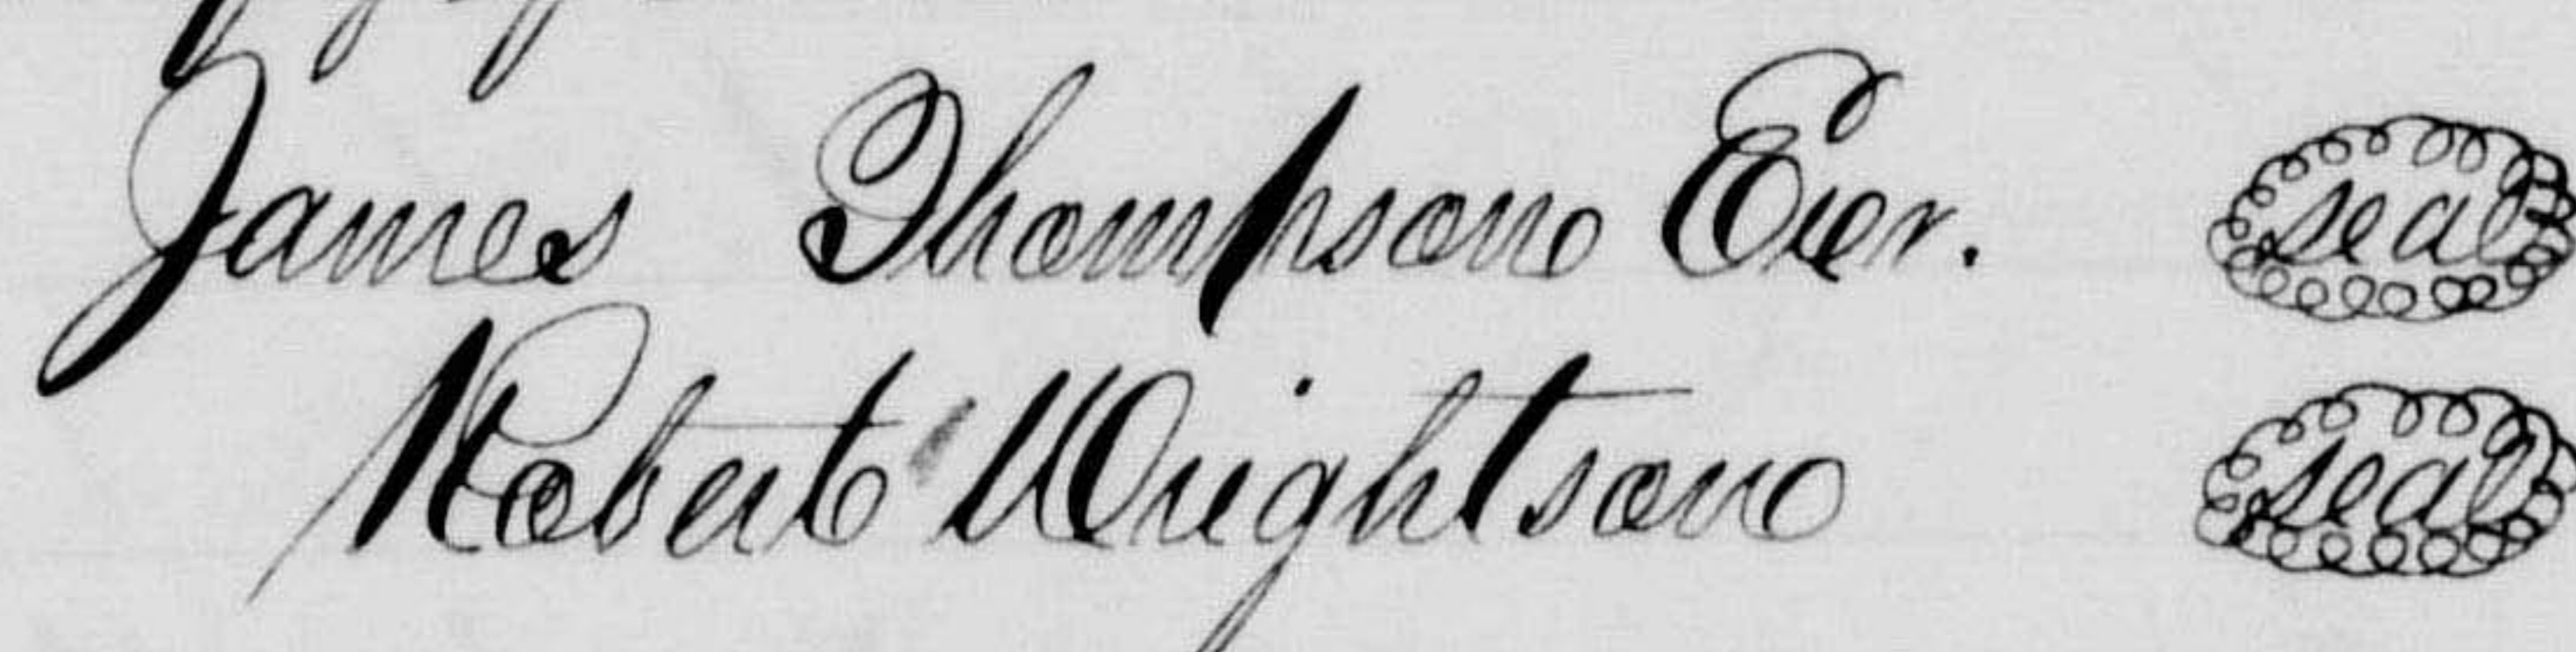 James Thompson Exr. seal
Robert Wrightson seal